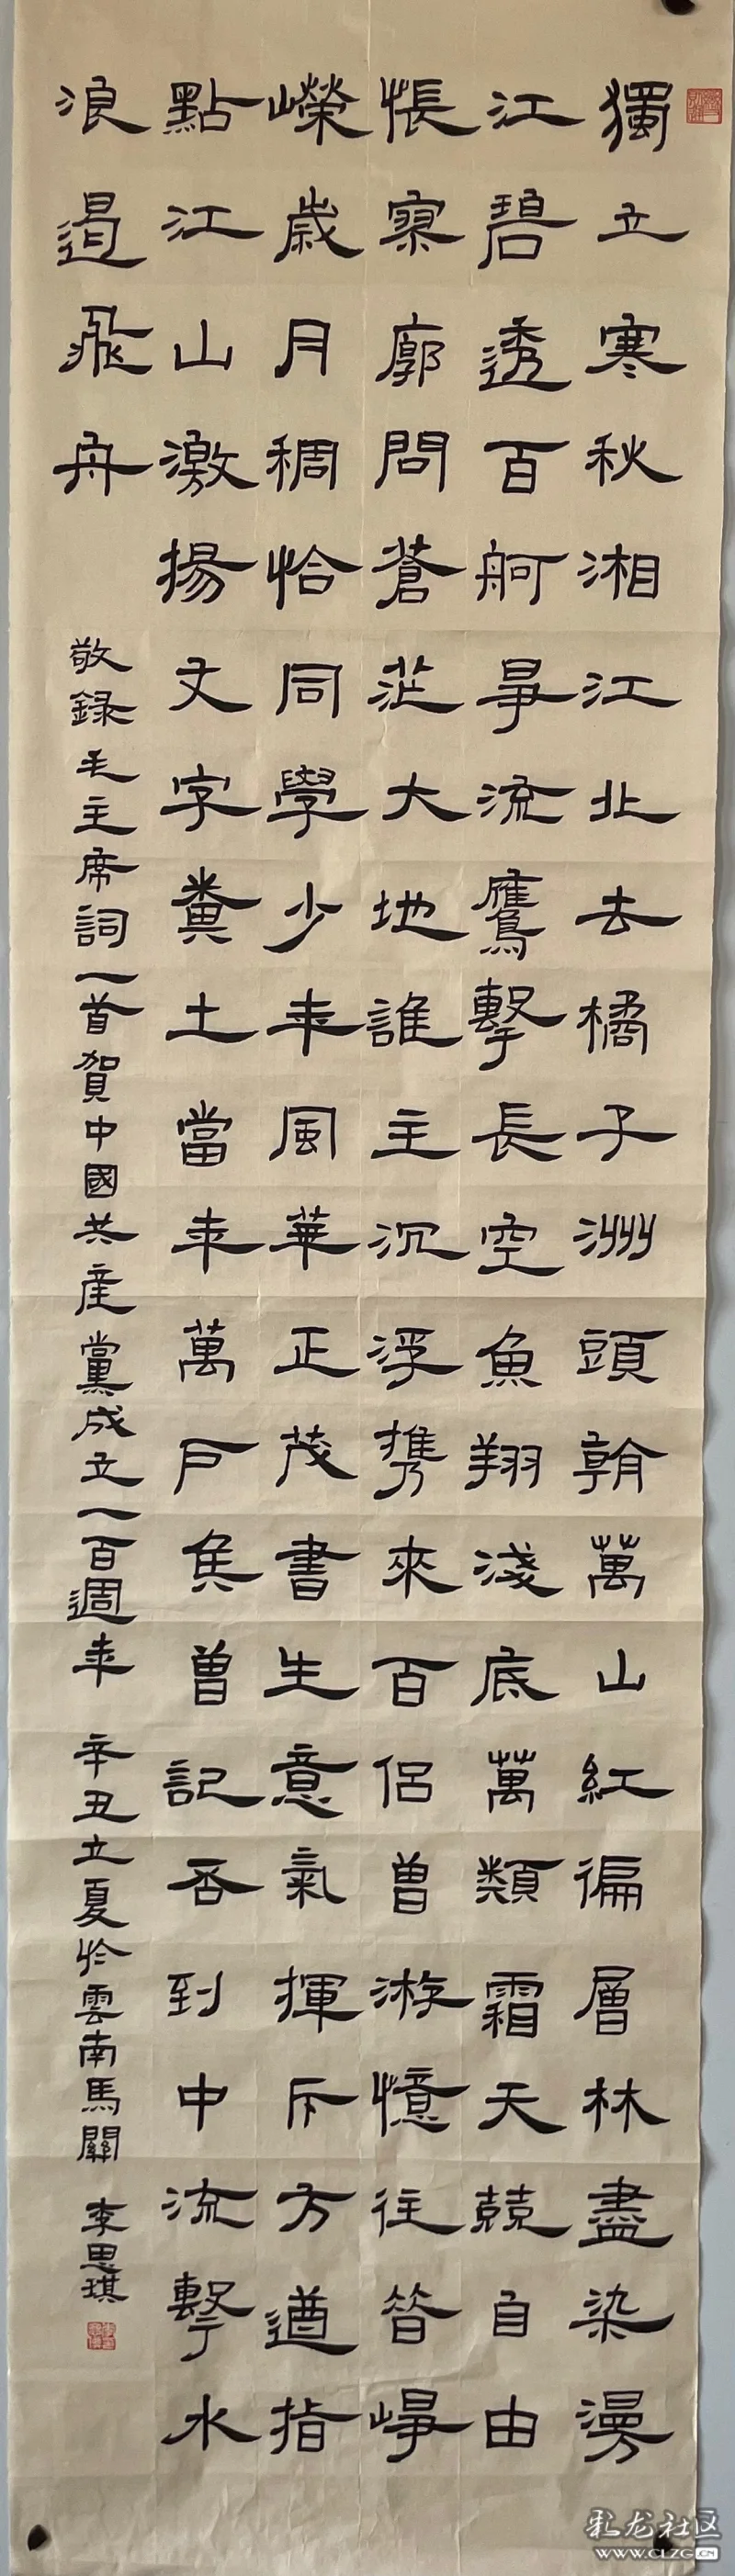 獨立寒秋湘江北去橘子洲頭看萬山紅徧層林盡染漫
江碧透百舸爭流鷹擊長空魚翔淺底萬類霜天競自由
悵寥廓問蒼茫大地誰主沉浮携來百侶曾游憶往昔崢
嶸歲月稠恰同學少年風華正茂書生意氣揮斥方遒指
點江山激揚文字糞土當年萬戶侯曾記否到中流擊水
浪遏飛舟
敬錄毛主席詞一首賀中國共產黨成立一百週年 辛丑立夏於雲南馬關 李思琪
彩龙社区
WWW.CLZG.CN